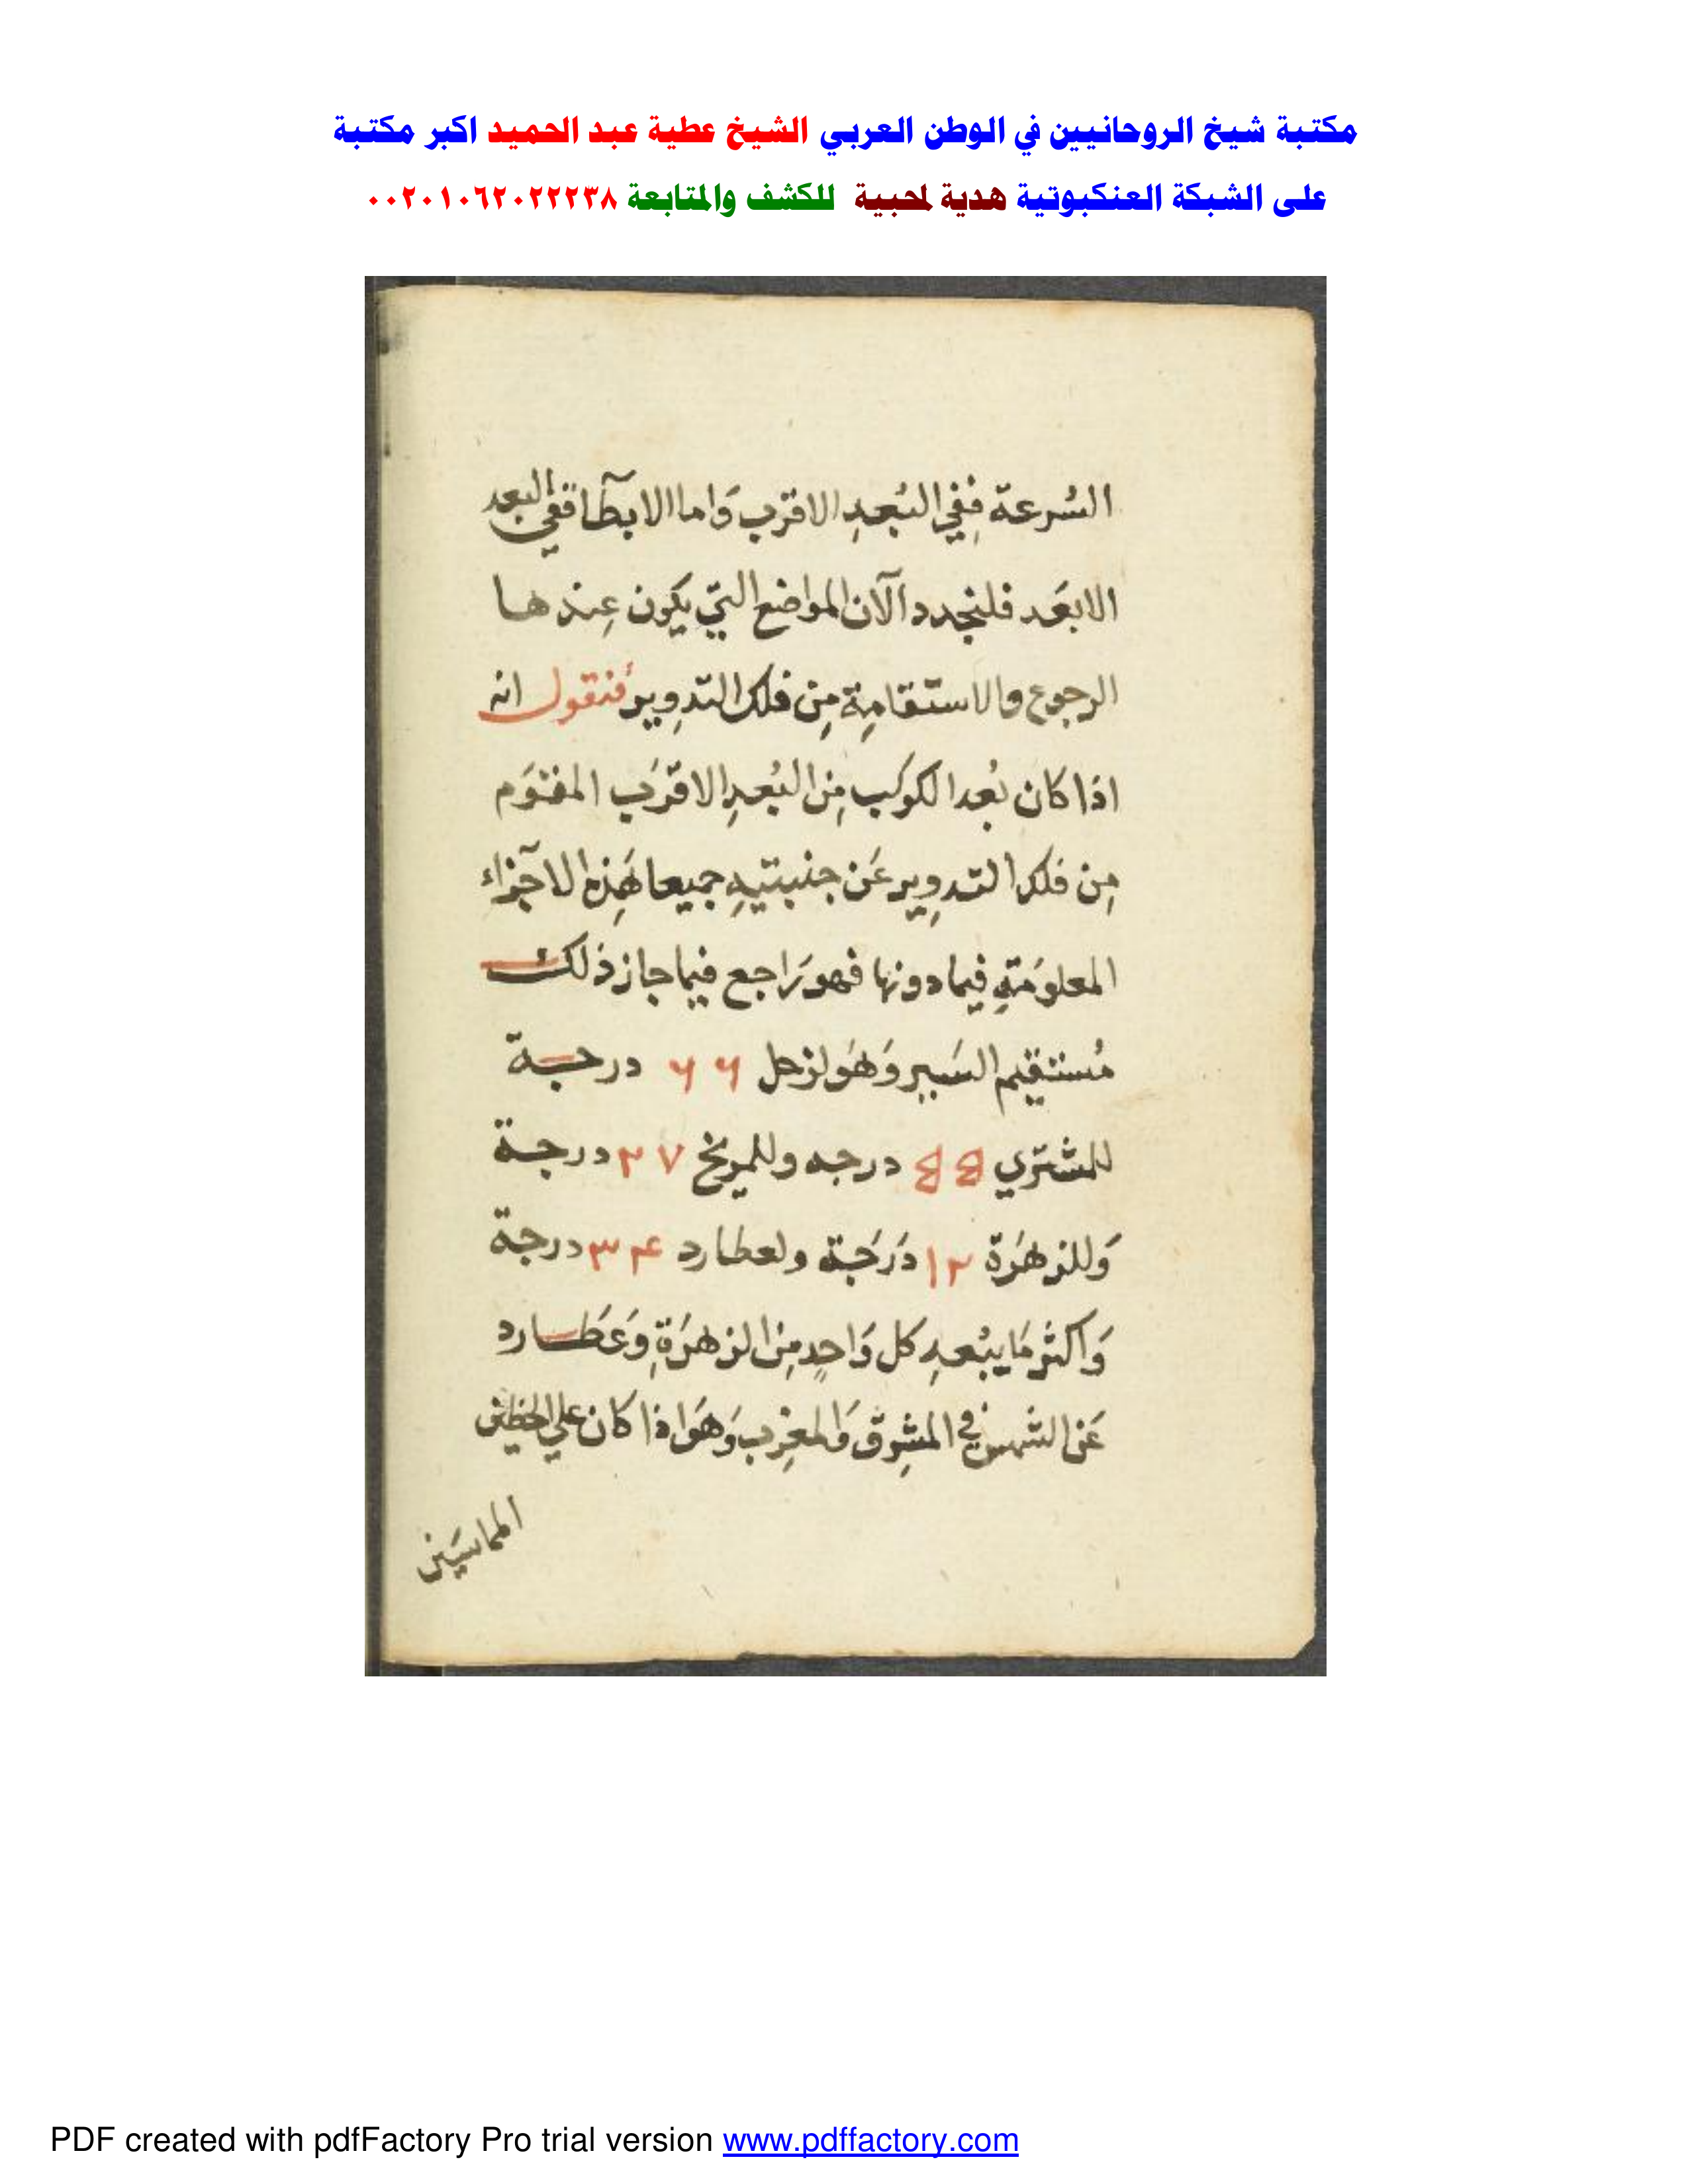 مكتبة شيخ الروحانيين في الوطن العربي الشيخ عطية عبد الحميد اكبر مكتبة
على الشبكة العنكبوتية هدية لمحبية للكشف والمتابعة ٠٠٢٠١٠٦٢٠٢٢٢٣٨
السُرعة ففِي البُعدِ الاقرب وَاما الابطآ ففي البعد
الابعَد فلنجدد الآن المواضع التيّ يكون عِندها
الرجوع والاستقامِة مِن فلك التدوِير فنقول انه
اذا كان بُعد الكوكَب مِن البُعدِ الاقرَب المقوَم
مِن فلك التدوِير عَن جنبتيهِ جميعا هَذِه الاجزاء
المعلومَةِ فيما دونها فهو رَاجع فيما جاز ذلك
مُستقيم السَير وَهوَ لزحل ٦٦ درجة
للمشتري ٥٥ درجه وللمريخ ٣٧ درجة
وَللزهرَة ١٢ دَرَجَة ولعطارد ٣٤ درجة
وَاكثر مَا يبُعدِ كل وَاحِدٍ مِن الزهرَةِ وَعَطارد
عَن الشمس في المشِرق وَالمغرِب وَهوَ اذا كان علي الخطين
المماسَين
PDF created with pdfFactory Pro trial version www.pdffactory.com